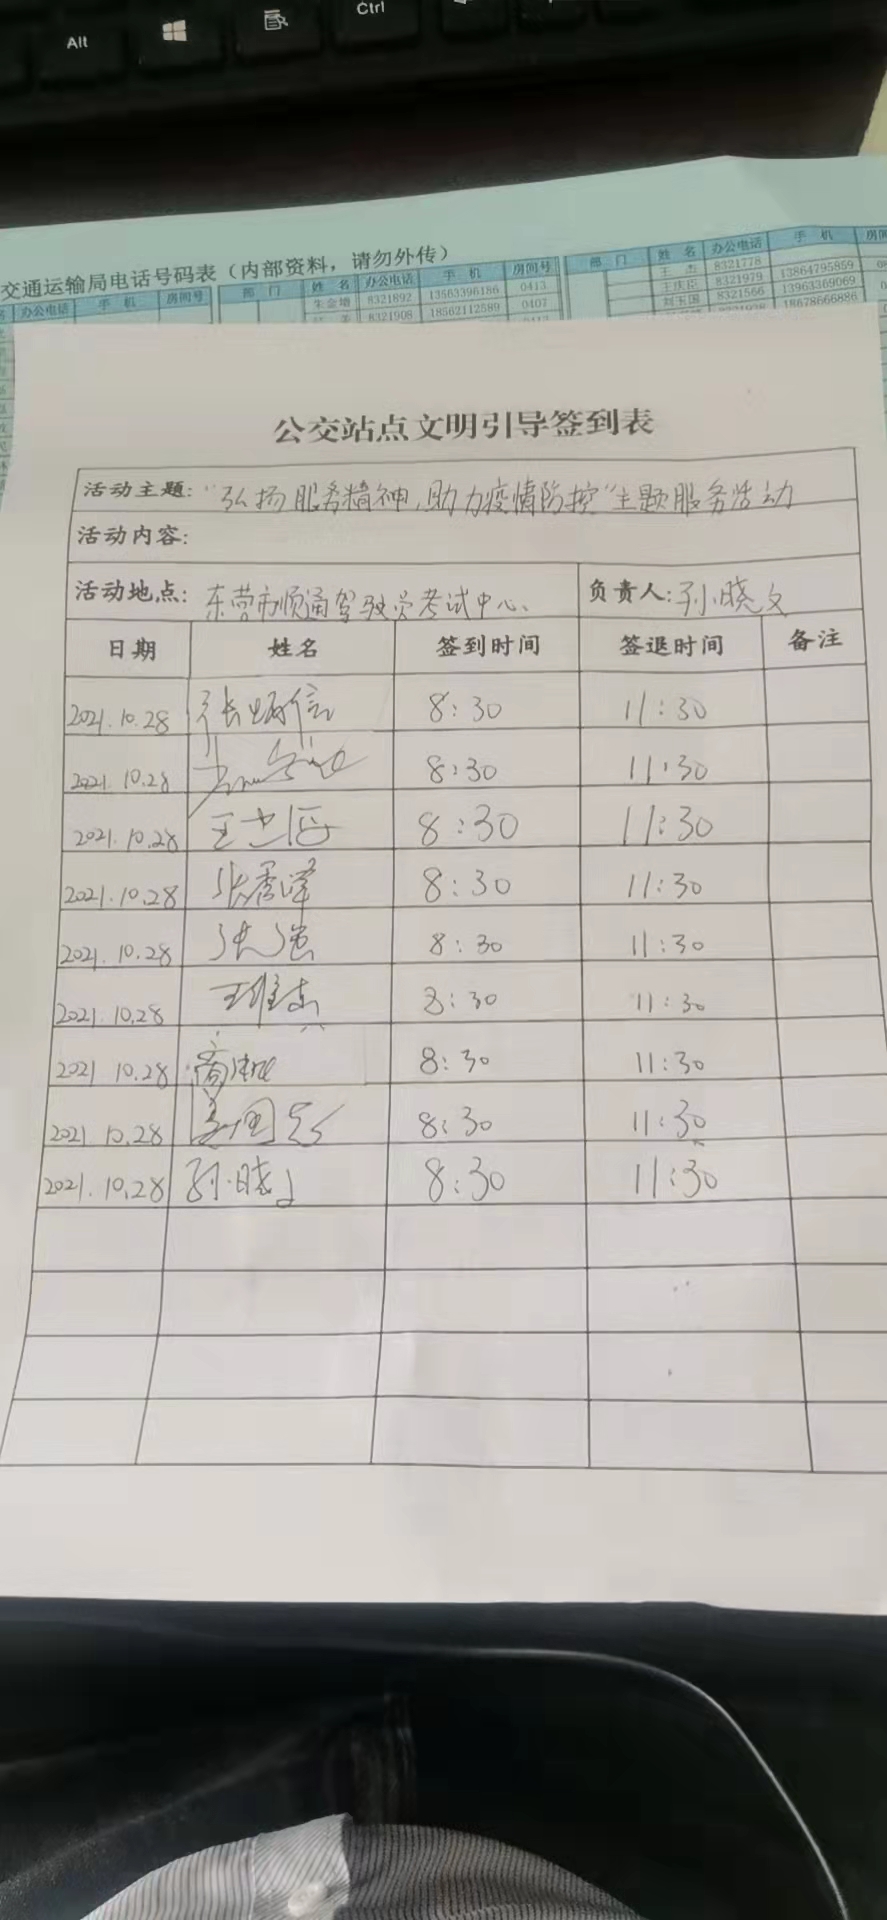 Alt
Ctrl
交通运输局电话号码表（内部资料，请勿外传）
办公电话 手机 房间号 部门 姓名 办公电话 手机 房间号 部门 姓名 办公电话 手机
8321892 13563396186 0413 王杰 8321778
8321908 18562112589 0407 王庆臣 8321979 13864795859
刘玉国 8321566 13963369069
18678666886
公交站点文明引导签到表
活动主题：“弘扬服务精神，助力疫情防控”主题服务活动
活动内容：
活动地点：东营市顺通驾驶员考试中心、 负责人：孙晓文
日期 姓名 签到时间 签退时间 备注
2021.10.28 张炳信 8:30 11:30
2021.10.28 8:30 11:30
2021.10.28 8:30 11:30
2021.10.28 张秀峰 8:30 11:30
2021.10.28 张强 8:30 11:30
2021.10.28 8:30 11:30
2021 10.28 8:30 11:30
2021 10.28 8:30 11:30
2021.10.28 孙晓文 8:30 11:30